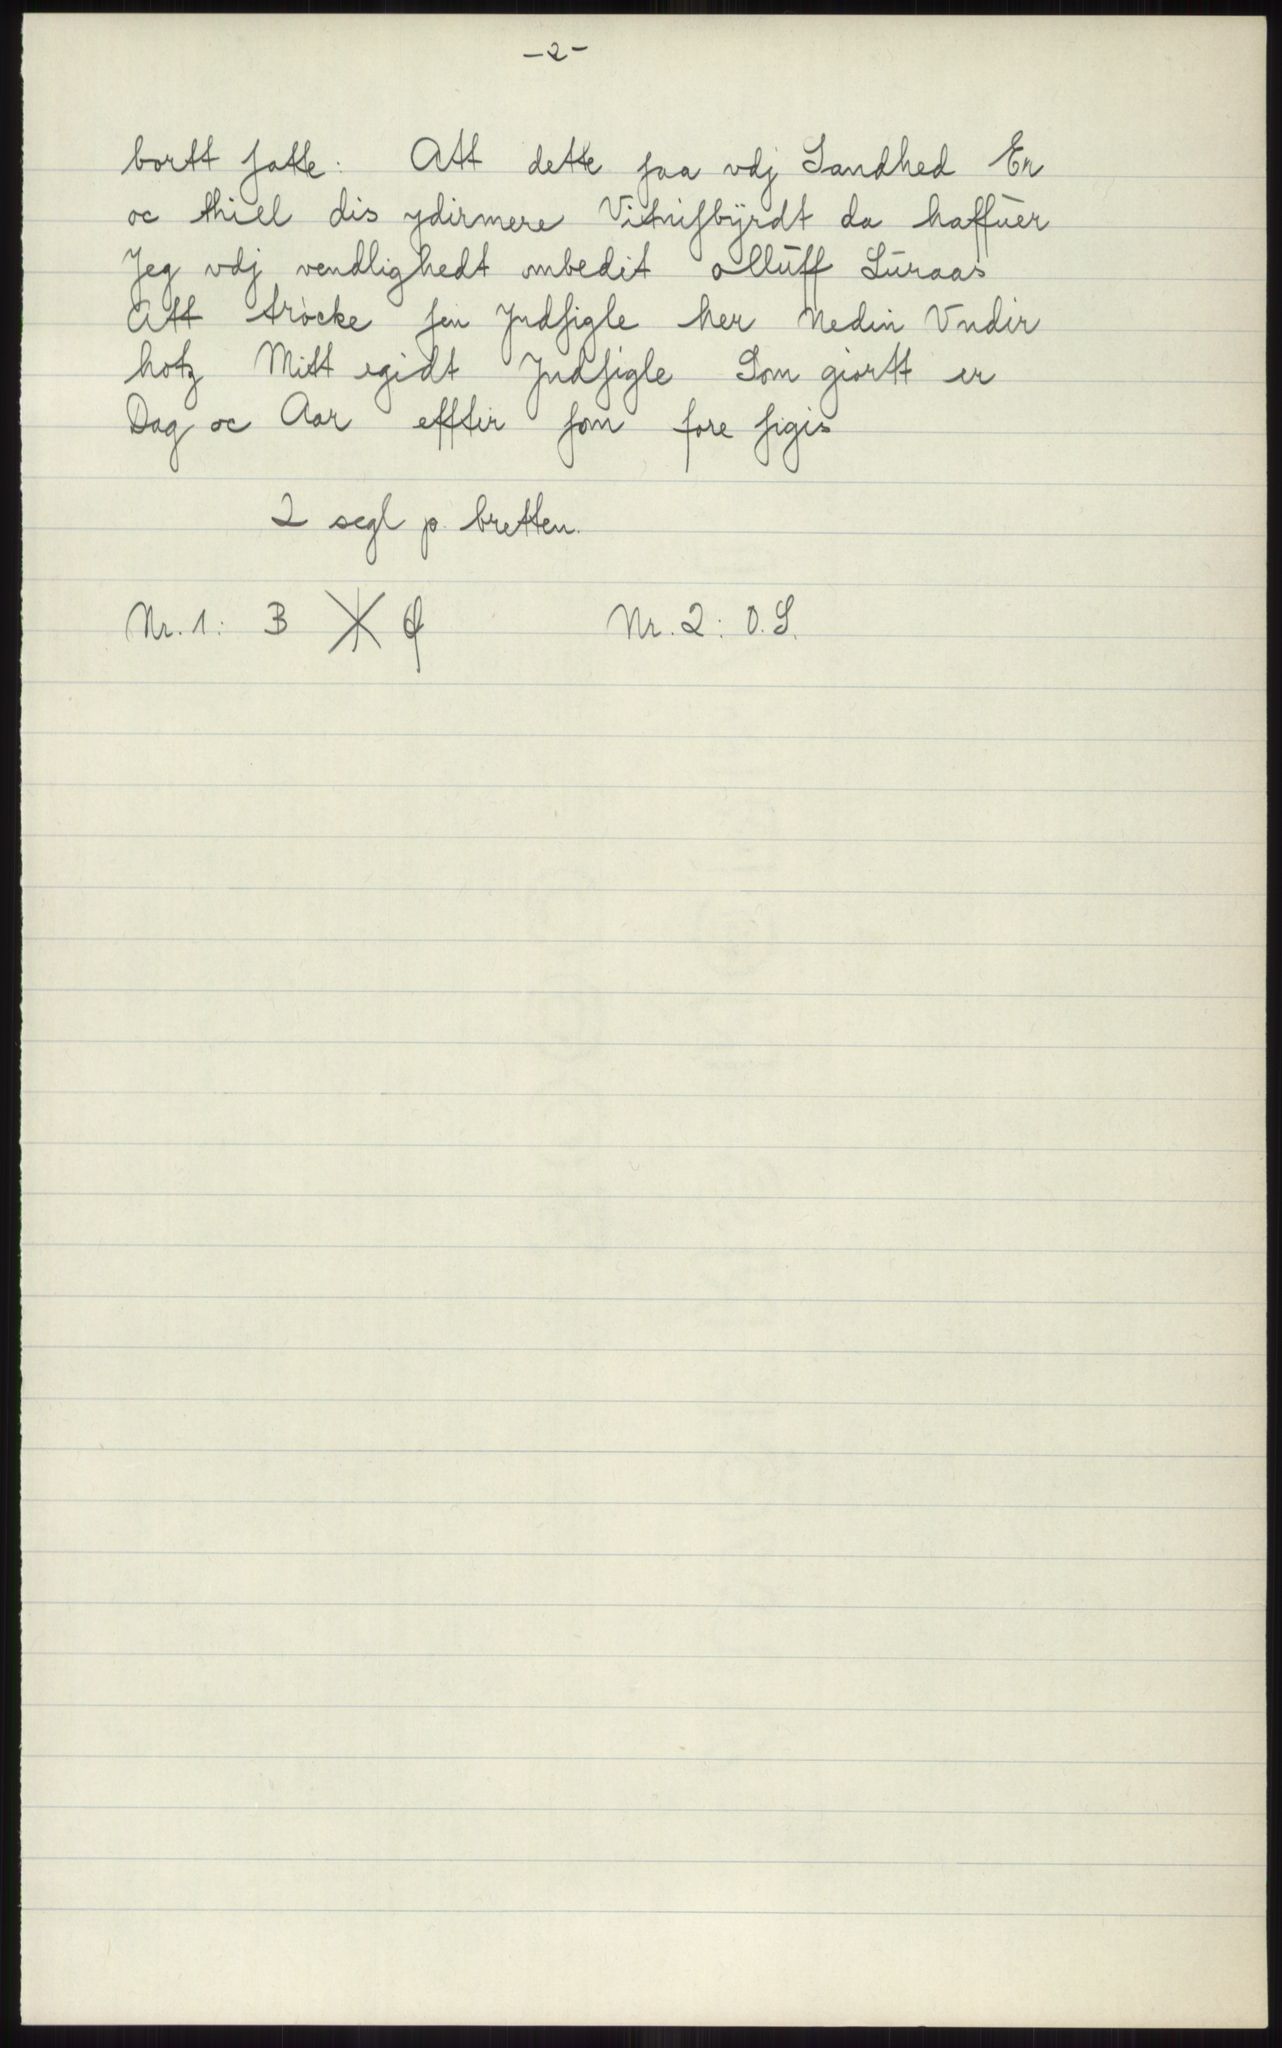 -2-
bortt ſatte: Att dette ſaa vdj Sandhed Er
oc thill dis ydirmere Vitniſbÿrdt da haffuer
Jeg vdj vendlighedt ombedit olluff Luraas
Att tröcke ſin Jndſigle her Nedin Vndir
hotz Mitt egidt Jndſigle Som giortt er
Dag oc Aar efftir ſom fore ſigis
2 segl p. bretten.
Nr. 1: B Nr. 2: O.L.